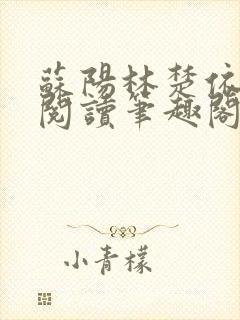 蘇陽林楚依
閱讀筆趣閣
小青檬